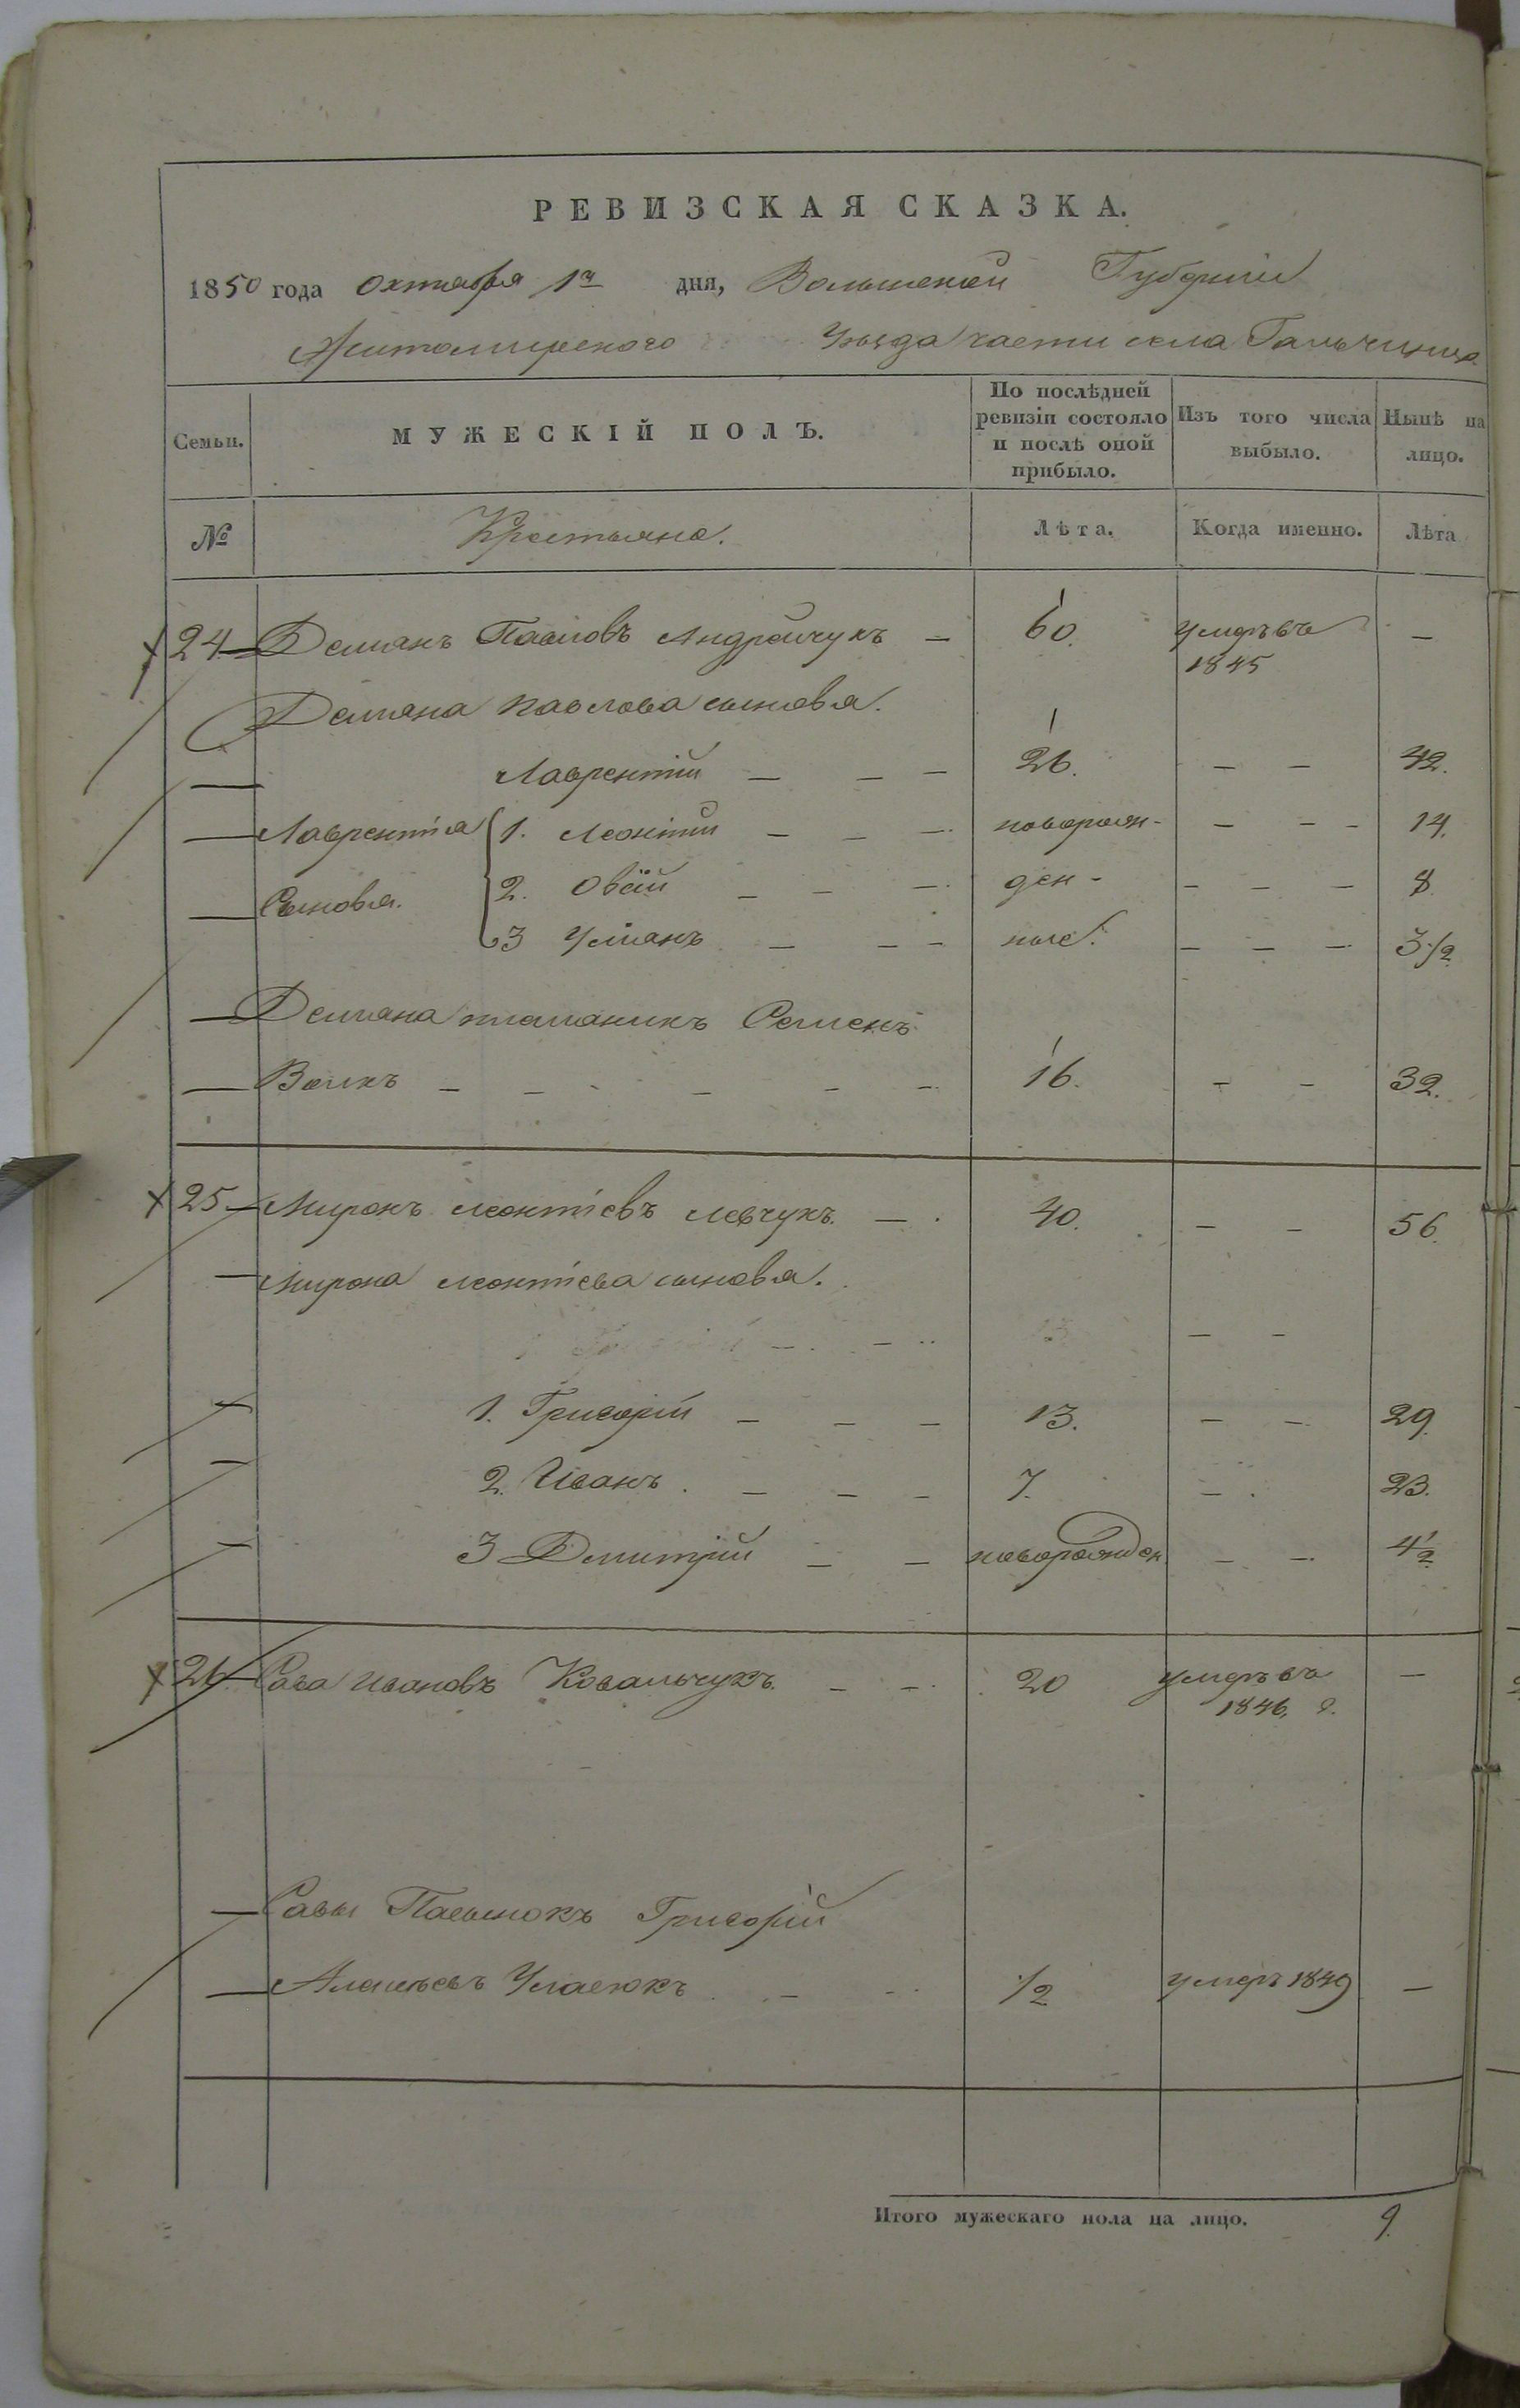 РЕВИЗСКАЯ СКАЗКА.
1850 года Октября 1го дня, Волынской Губернiи
Житомирского Уѣзда части села Гальчинца
Семьи. МУЖЕСКIЙ ПОЛЪ. По послѣдней ревизiи состояло и послѣ оной прибыло. Изъ того числа выбыло. Нынѣ на лицо.
№ Крестьяне. Лѣта. Когда именно. Лѣта
24 Демянъ Павловъ Андрейчукъ — 60. умеръ въ 1845 —
Демяна Павлова сыновья.
Лаврентiй — — — 26. — — 42.
Лаврентiя 1. Леонтiй — — — новорож- — — — 14.
Сыновья. 2. — — — ден- — — — 8.
3 — — — ные. — — — 3 1/2
Демяна племяникъ Семенъ
Волкъ — — — — — 16. — — 32.
25 Миронъ Леонтiевъ Левчукъ. — 40. — — 56.
Мирона Леонтiева сыновья.
— — — —
1. Григорiй — — — 13. — — 29.
2. Иванъ. — — — 7. — 23.
3 Дмитрiй — — новорожден. — — 4 1/2
26 Сава Ивановъ Ковальчукъ. — — 20 умеръ въ 1846, г. —
Савы Пасынокъ Григорiй
Алексѣевъ — — 1/2 умеръ 1849 —
Итого мужескаго пола на лицо. 9.